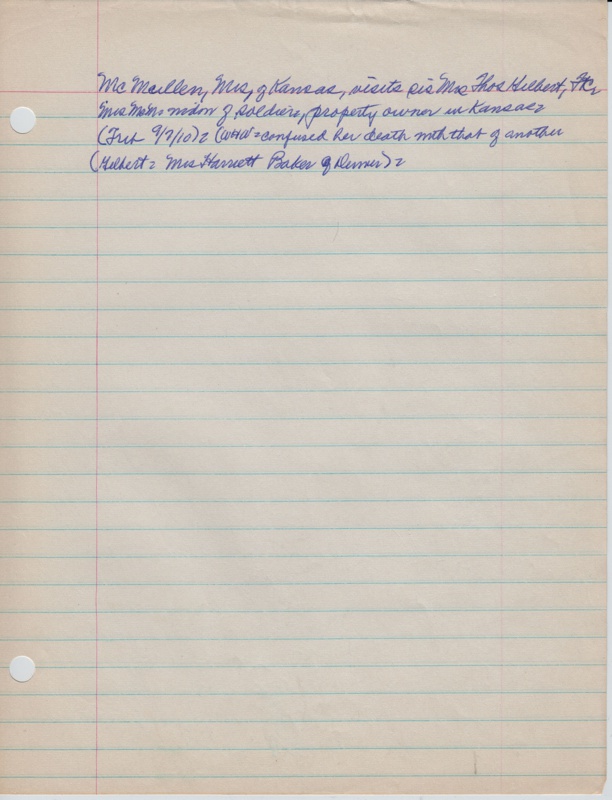 Mc Mullen, Mrs, of Kansas, visits sis Mrs Thos Gilbert,
Mrs McM= widow of soldier, property owner in Kansas=
(Trib 9/7/10)= (WHW=confused her death with that of another
(Gilbert= Mrs Harriett Baker of Denver)=